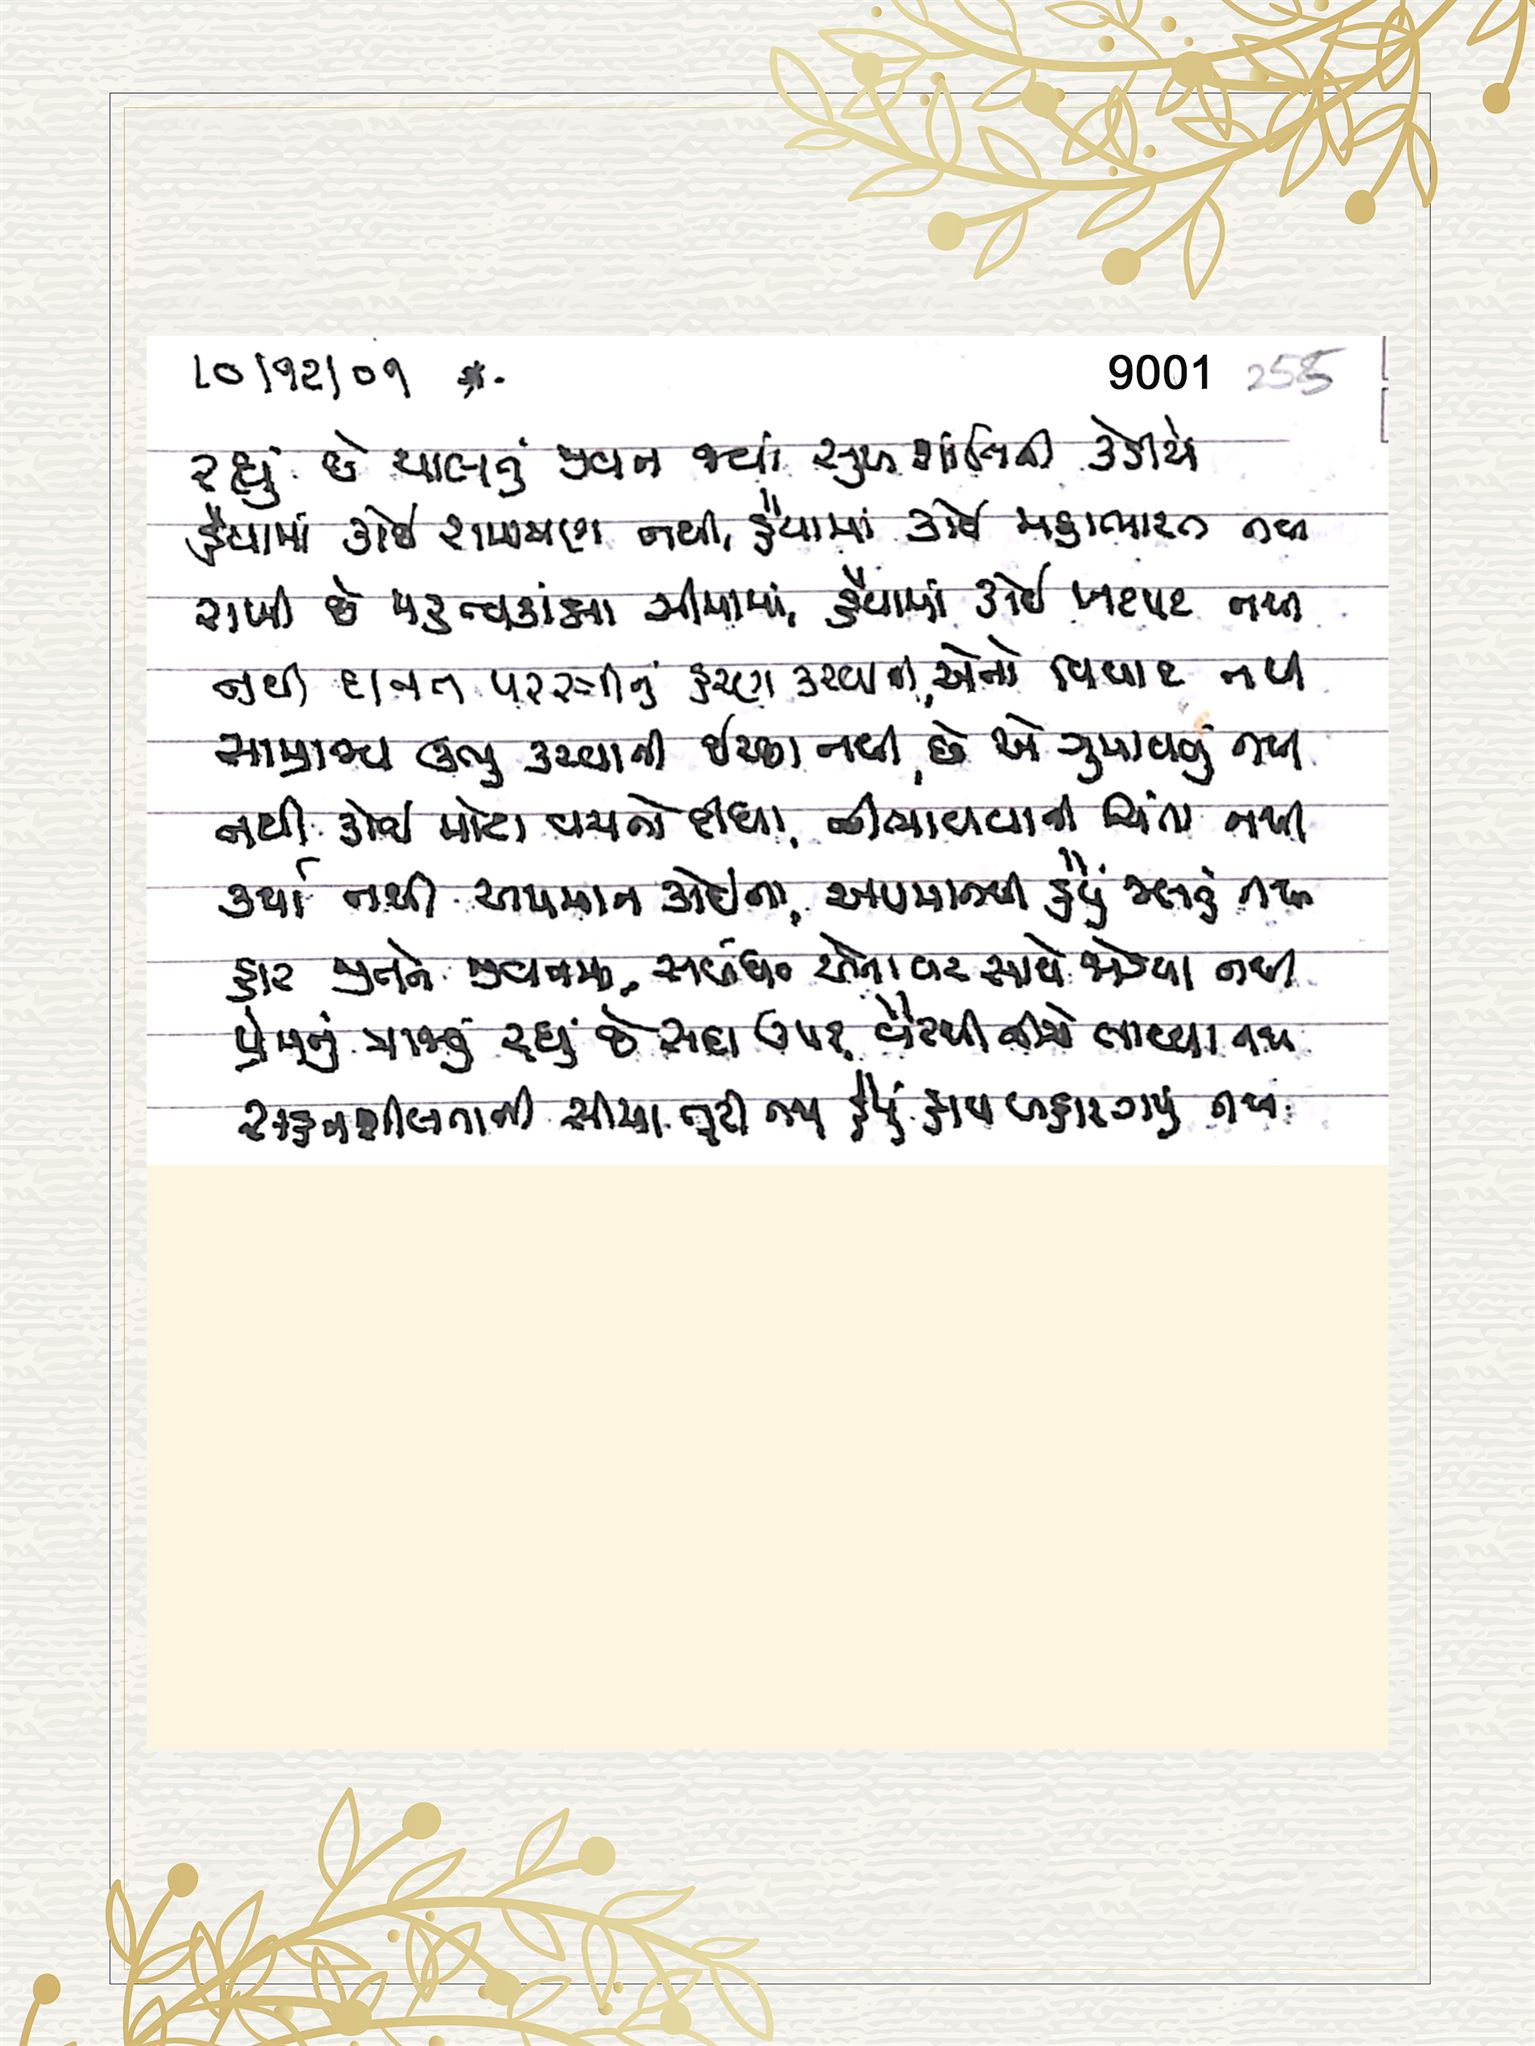 ૮૦/૧૨/૦૧ 9001 255
રહ્યું છે ચાલતું જીવન જ્યાં સુખ શાંતિની કેડીયે
હૈયામાં કોઈ રામાયણ નથી, હૈયામાં કોઈ મહાભારત નથી
રાખી છે મહત્વકાંક્ષા સીમામાં, હૈયામાં કોઈ ખટપટ નથી
નથી દાનત પરસ્ત્રીનું હરણ કરવાની, એનો વિચાર નથી
સામ્રાજ્ય ઉભું કરવાની ઈચ્છા નથી, છે એ ગુમાવવું નથી
નથી કોઈ મોટા વચનો દીધા, નીભાવવાની ચિંતા નથી
કર્યા નથી અપમાન કોઈના, અપમાનથી હૈયું મલતું નથી
હાર જીતને જીવનમાં, સબંધ એના વર સાથે જોડયા નથી
પ્રેમનું ત્રાજવું રહ્યું છે સદા ઉપર, વૈરથી નીચે લાવ્યા નથી
સહનશીલતાની સીમા તૂટી નથી હૈયું હાથ બહાર ગયું નથી